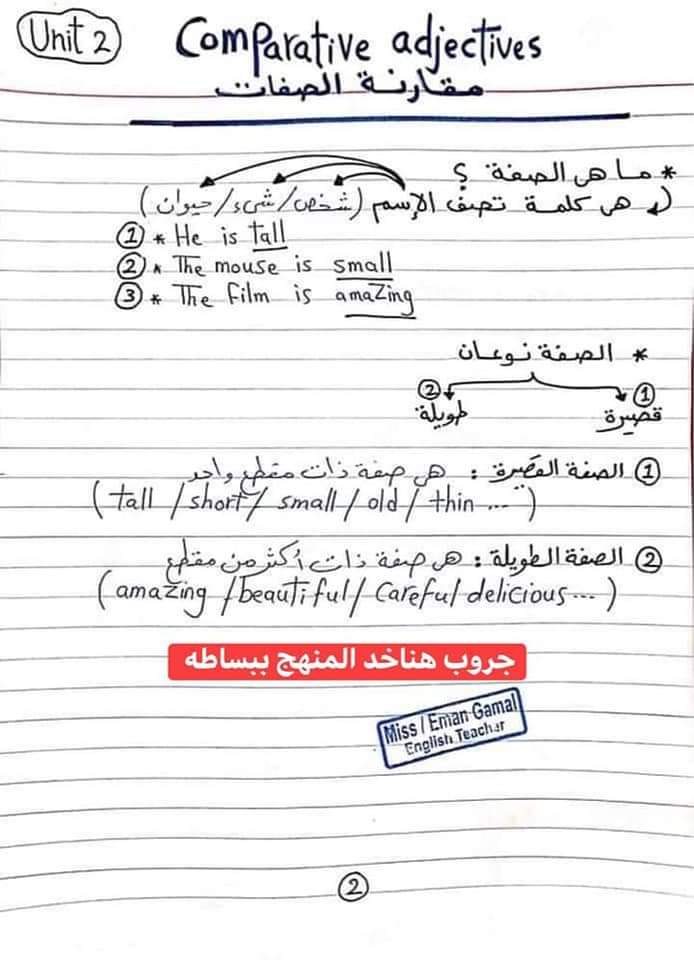 Unit 2
Comparative adjectives
مقارنة الصفات
* ما هى الصفة ؟
هى كلمة تصف الإسم (شخص/شىء/حيوان)
① * He is tall
② * The mouse is small
③ * The film is amazing
* الصفة نوعان
① ②
قصيرة طويلة
① الصفة القصيرة : هى صفة ذات مقطع واحد
( tall / short / small / old / thin ... )
② الصفة الطويلة : هى صفة ذات أكثر من مقطع
( amazing / beautiful / careful / delicious ... )
جروب هناخد المنهج ببساطه
Miss / Eman Gamal
English Teacher
②